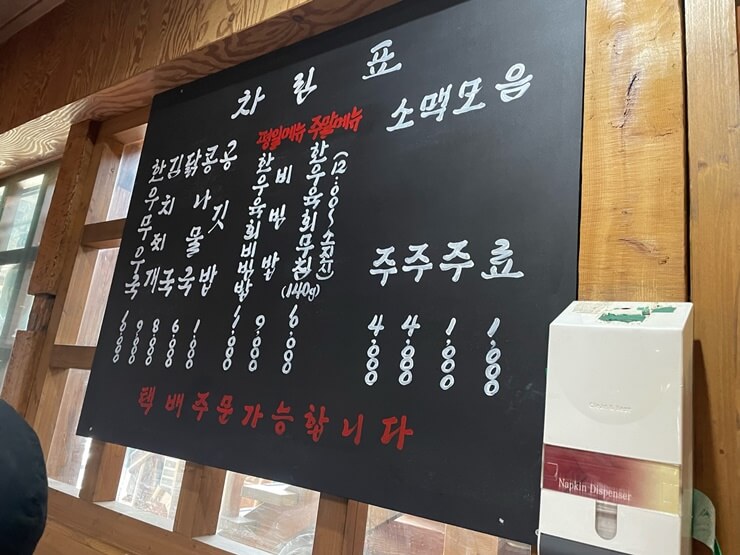 차림표
한우무우국 6,000
김치찌개 9,000
닭국 8,000
콩나물국 6,000
공깃밥 1,000
평일메뉴
한우육회비빔밥
비빔밥 9,000
주말메뉴
한우육회무침(140g)
(12:00~소진시)
소주 4,000
맥주 4,000
모주 1,000
음료 1,000
택배주문가능합니다
Napkin Dispenser